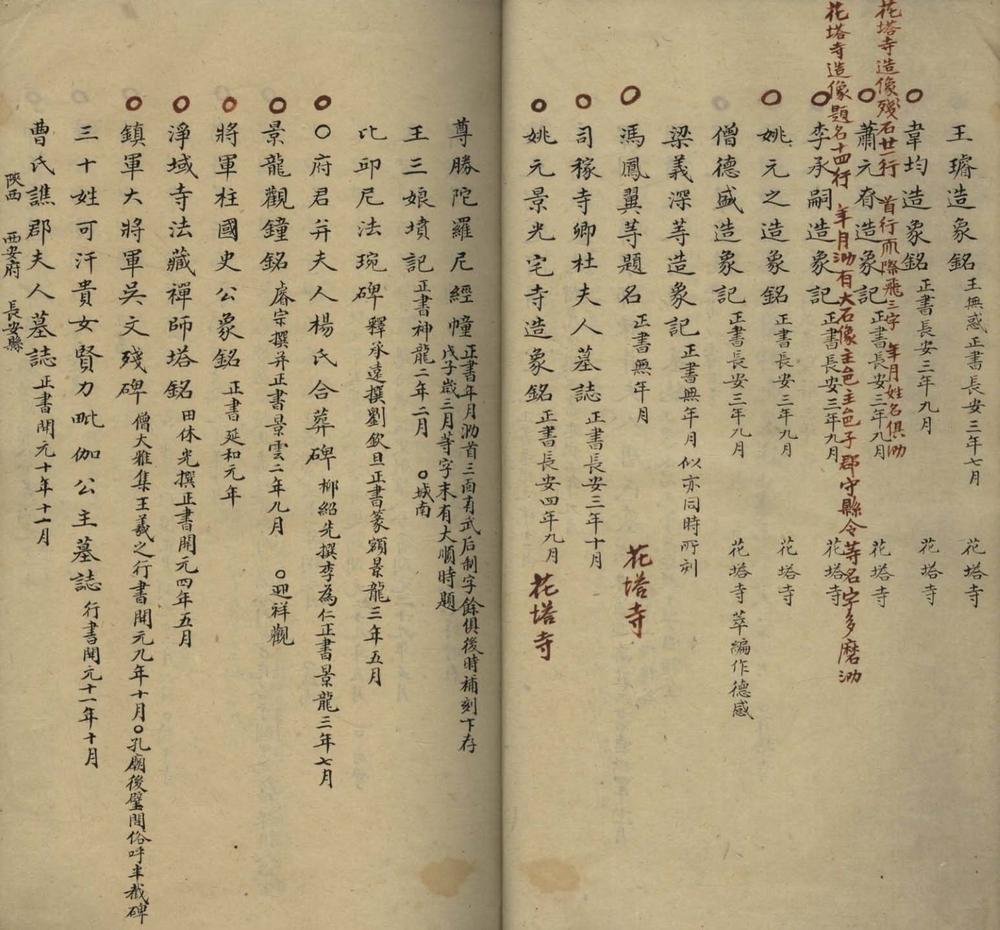 王璿造象銘 王無惑正書長安三年七月 花塔寺
韋均造象銘 正書長安三年九月 花塔寺
花塔寺造像殘石廿行 首行而際飛三字 年月姓名俱泐
蕭元眘造象記 正書長安三年九月 花塔寺
花塔寺造像題名十四行 年月泐有大石像主邑主邑子郡守縣令等名字多磨泐
李承嗣造象記 正書長安三年九月 花塔寺
姚元之造象銘 正書長安三年九月 花塔寺
僧德盛造象記 正書長安三年九月 花塔寺 萃編作德感
梁義深等造象記 正書無年月 似亦同時所刻
馮鳳翼等題名 正書無年月 花塔寺
司稼寺卿杜夫人墓誌 正書長安三年十月
姚元景光宅寺造象銘 正書長安四年九月 花塔寺
尊勝陀羅尼經幢 正書年月泐首三面有武后制字餘俱後時補刻下存
戊子歲三月等字末有大順時題
王三娘墳記 正書神龍二年二月 ○城南
比邱尼法琬碑 釋承遠撰劉欽旦正書篆額景龍三年五月
○府君并夫人楊氏合葬碑 柳紹先撰李為仁正書景龍三年七月
景龍觀鐘銘 睿宗撰并正書景雲二年九月 ○迎祥觀
將軍柱國史公象銘 正書延和元年
淨域寺法藏禪師塔銘 田休光撰正書開元四年五月
鎮軍大將軍吳文殘碑 僧大雅集王羲之行書開元九年十月○孔廟後璧間俗呼半截碑
三十姓可汗貴女賢力毗伽公主墓誌 行書開元十一年十月
曹氏譙郡夫人墓誌 正書開元十年十一月
陝西 西安府 長安縣